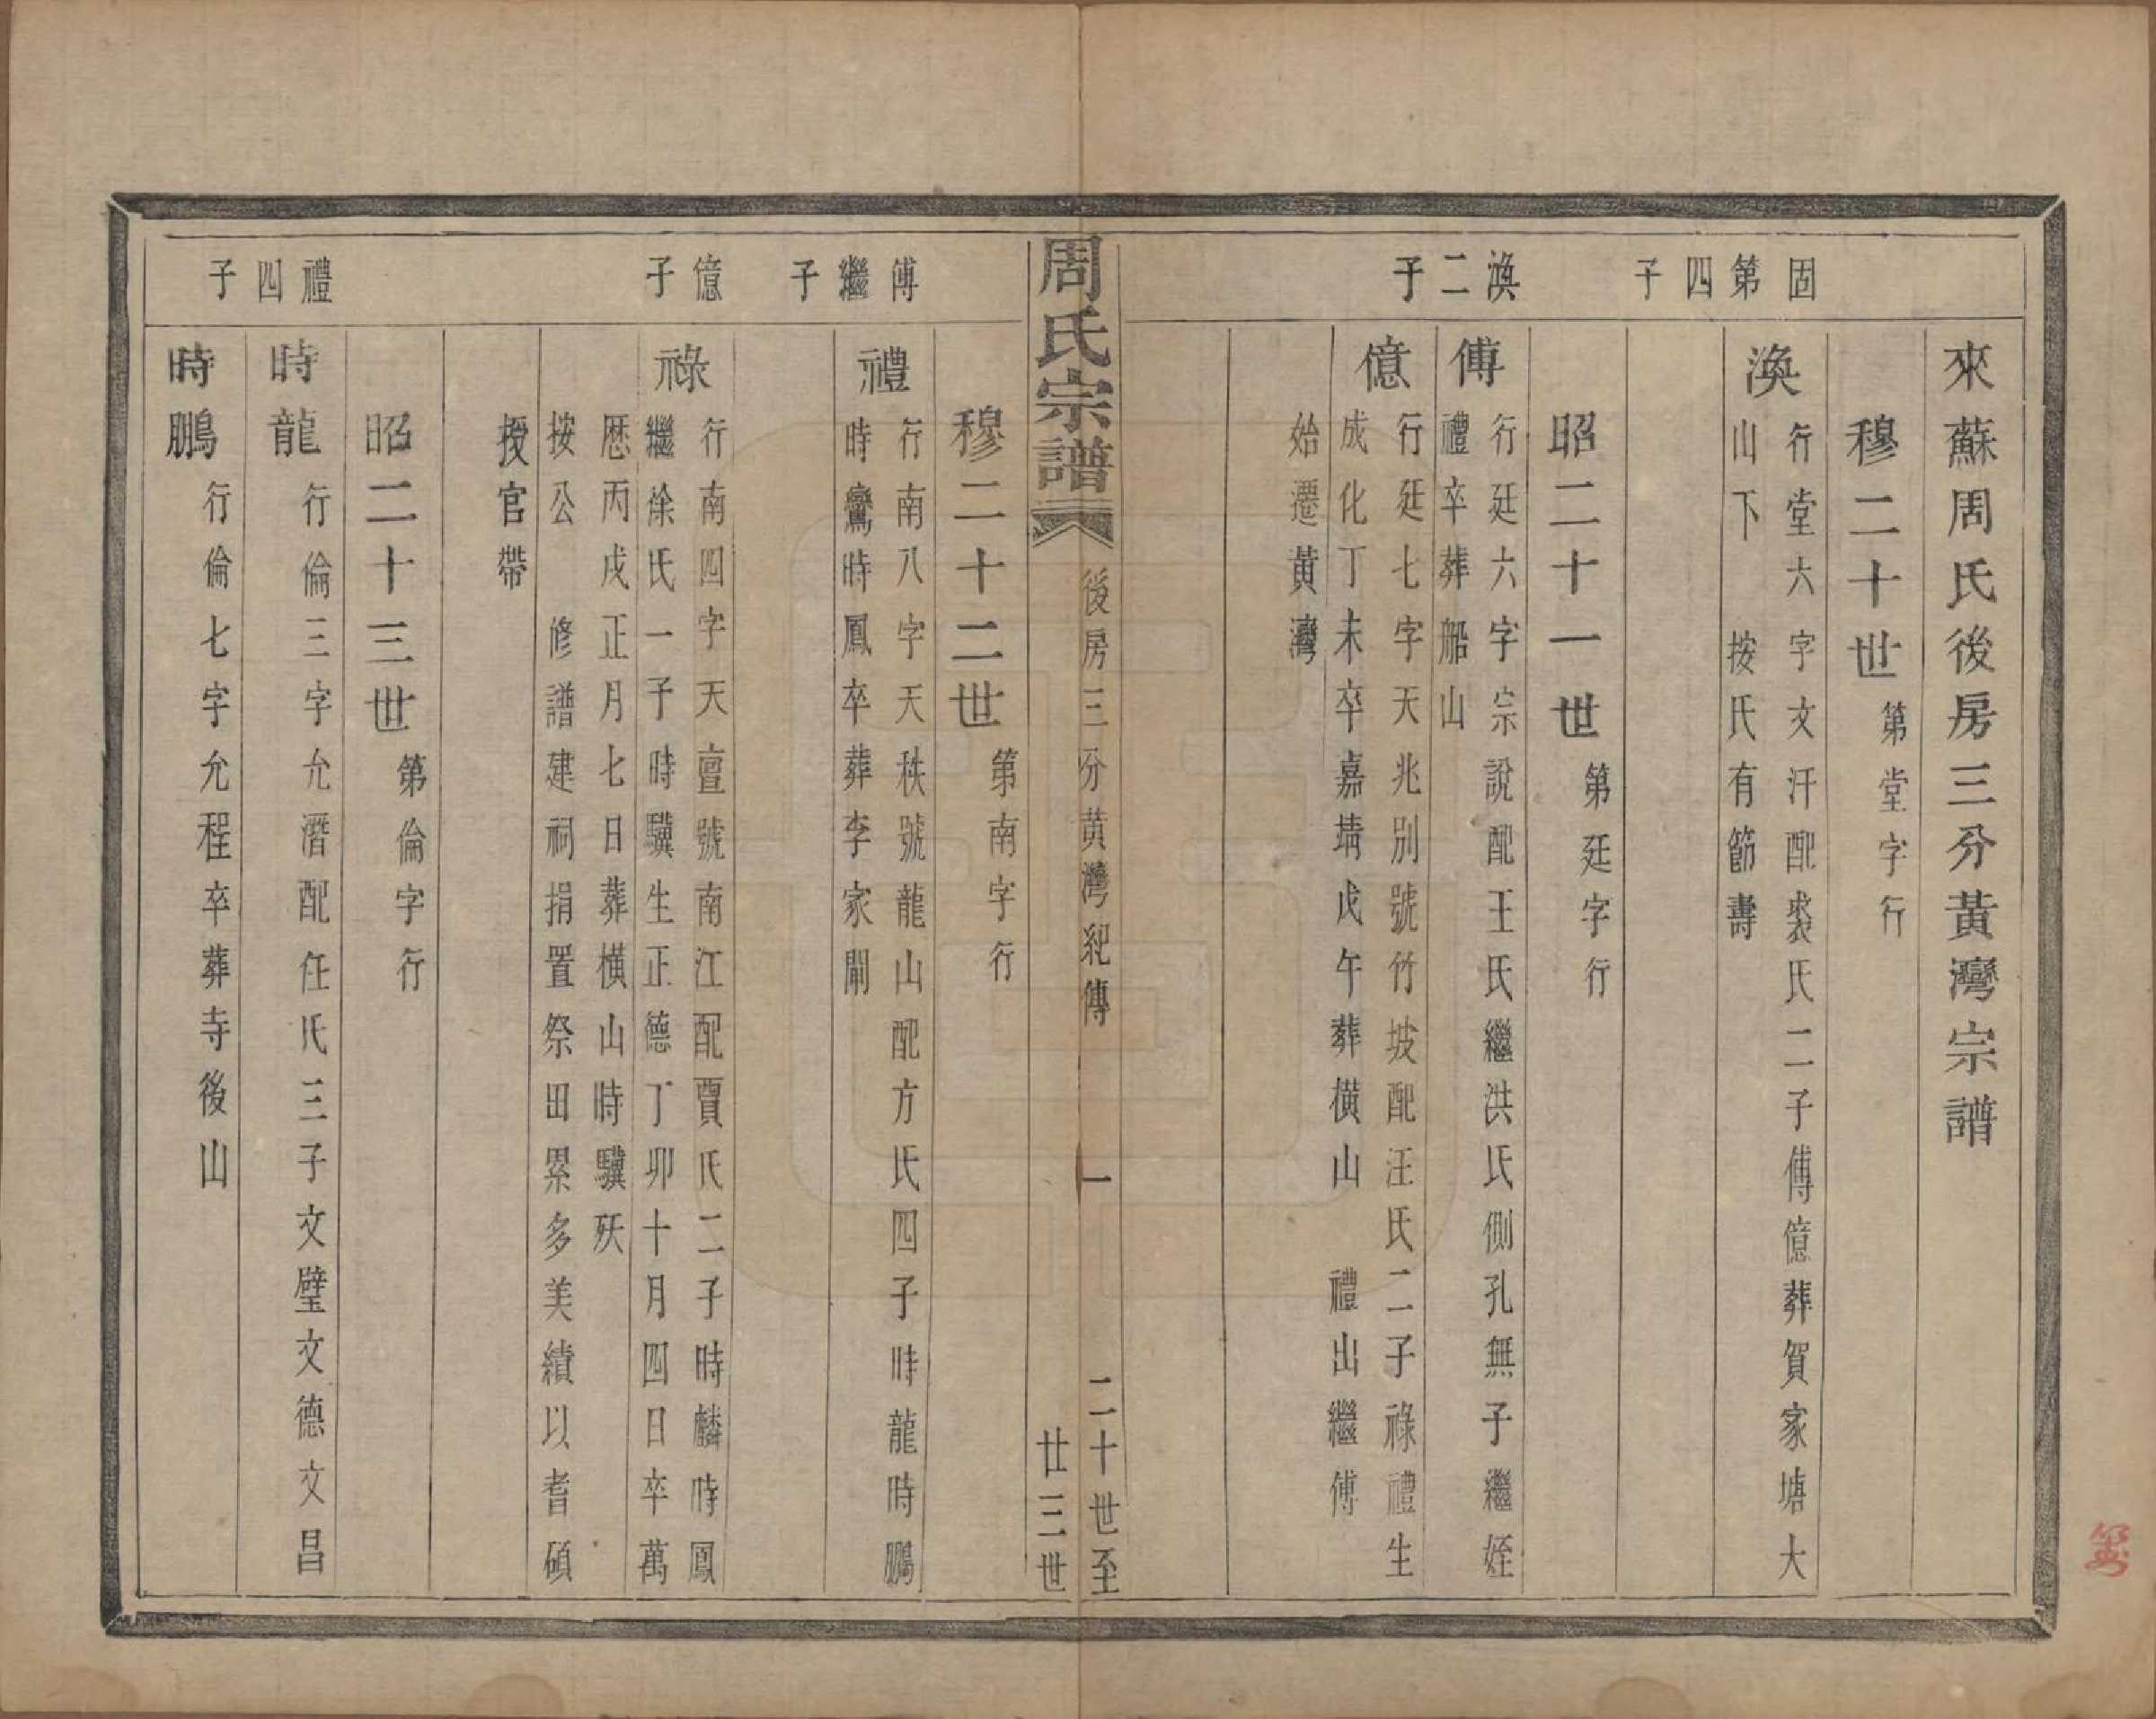 來蘇周氏後房三分黃灣宗譜
穆二十世 第堂字行
固第四子
渙 行堂六字文汗配裘氏二子傅億葬賀家塘大
山下 按氏有節壽
昭二十一世 第廷字行
渙二子
傅 行廷六字宗說配王氏繼洪氏側孔無子繼姪
禮卒葬船山
億 行廷七字天兆別號竹坡配汪氏二子祿禮生
成化丁未卒嘉靖戊午葬橫山 禮出繼傅
始遷黃灣
周氏宗譜 後房三分黃灣紀傳 一 二十世至
廿三世
穆二十二世 第南字行
傅繼子
禮 行南八字天秩號龍山配方氏四子時龍時鵬
時鸞時鳳卒葬李家閘
億子
祿 行南四字天亶號南江配賈氏二子時麟時鳳
繼徐氏一子時驥生正德丁卯十月四日卒萬
歷丙戌正月七日葬橫山時驥殀
按公 修譜建祠捐置祭田累多美績以耆碩
授官帶
昭二十三世 第倫字行
禮四子
時龍 行倫三字允潛配任氏三子文璧文德文昌
時鵬 行倫七字允程卒葬寺後山